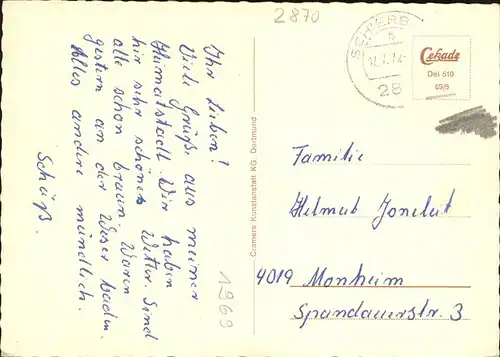 2870
Ihr Lieben!
Viele Grüße aus meiner
Heimatstadt. Wir haben
hir sehr schönes Wetter. Sind
alle schon braun. Waren
gestern an der Weser baden.
Alles andere mündlich.
Schüß.
1969
Cramers Kunstanstalt KG, Dortmund
28
Cekade
Dei 510
69/5
Familie
Helmut
4019 Monheim
Spandauerstr. 3